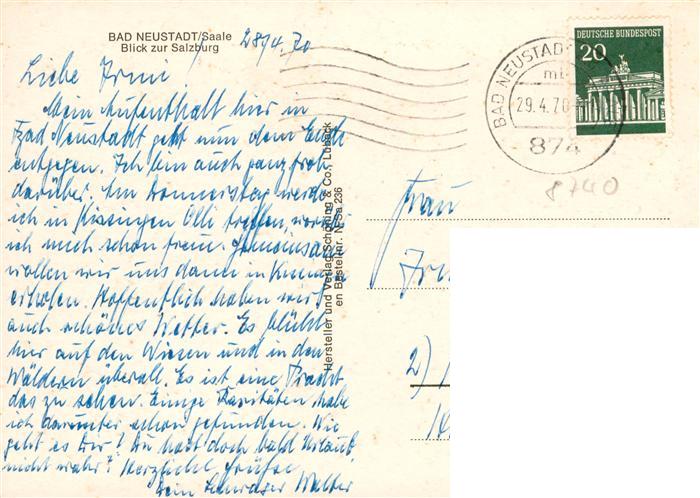 BAD NEUSTADT/Saale
Blick zur Salzburg
28/4.70
Liebe Irmi,
Mein Aufenthalt hier in
Bad Neustadt geht nun dem Ende
entgegen. Ich bin auch ganz froh
darüber. Am Donnerstag werde
ich in Kissingen Olli treffen, worauf
ich mich schon freue. Gemeinsam
wollen wir uns dann in
erholen. Hoffentlich haben wir
auch schönes Wetter. Es blüht
hier auf den Wiesen und in den
Wäldern überall. Es ist eine Pracht
das zu sehen. Einige Raritäten habe
ich darunter schon gefunden. Wie
geht es Dir? Du hast doch bald Urlaub
nicht wahr? Herzliche Grüße
Dein Schwager Walter
Hersteller und Verlag Schöning & Co., Lübeck
en Bestellnr. N Sa 236
BAD NEUSTADT
29.4.70
874
DEUTSCHE BUNDESPOST
20
8740
Frau
2)